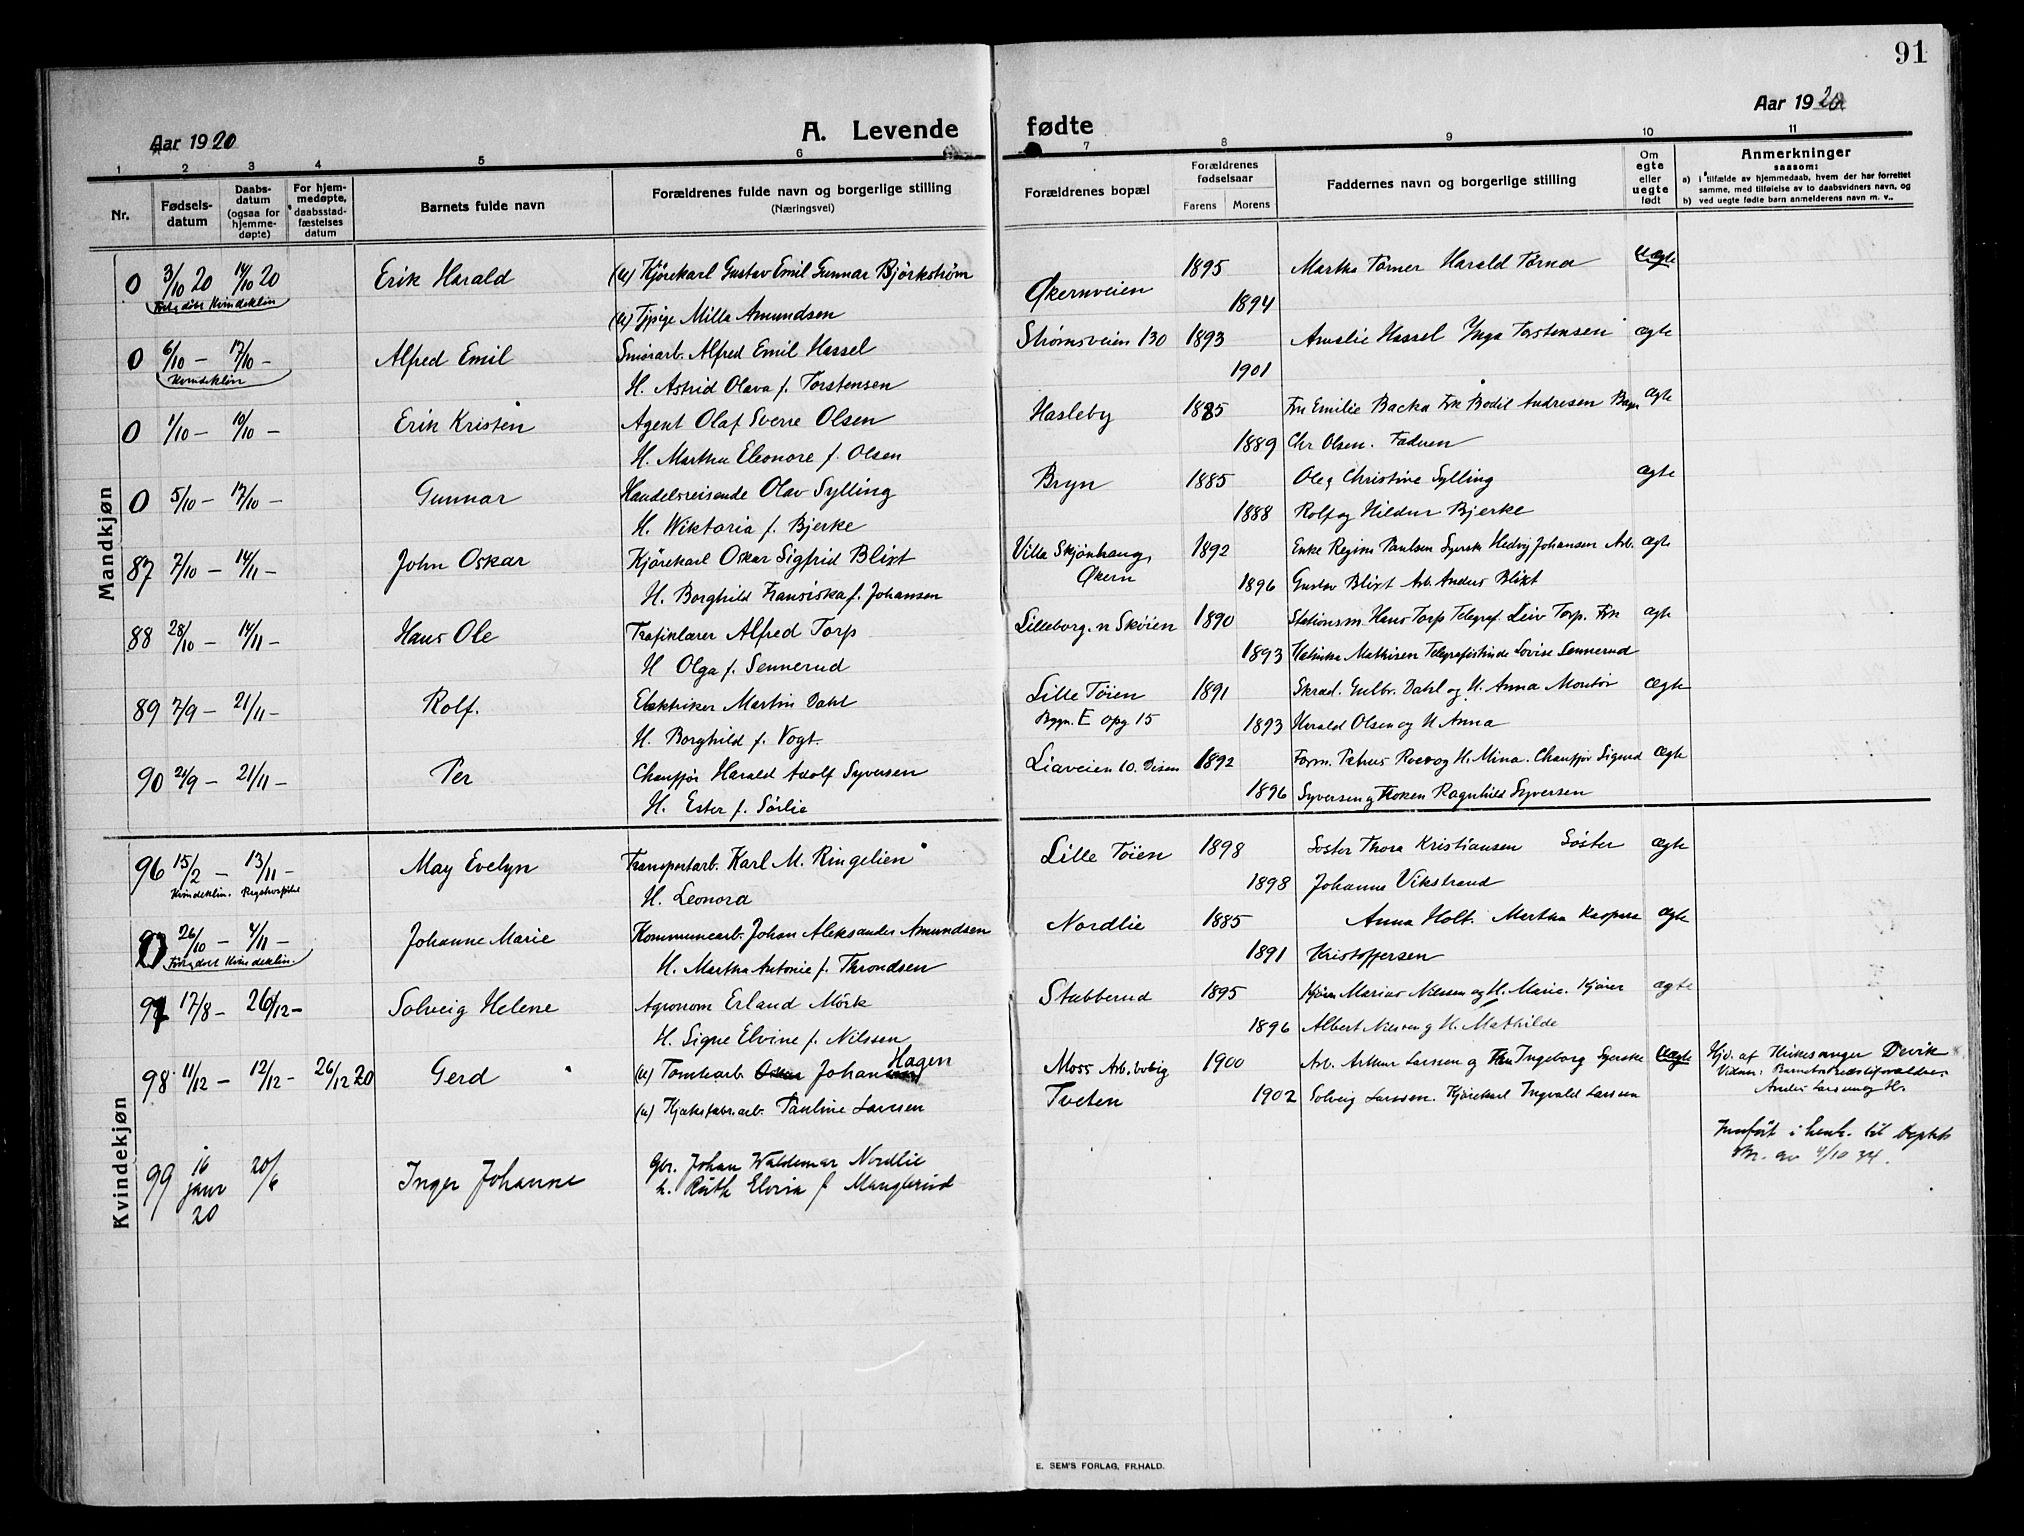 91
Aar 1920
A. Levende fødte
Aar 1920
1 2 3 4 5 6 7 8 9 10 11
Nr.
Fødsels-
datum
Daabs-
datum
(ogsaa for
hjemme-
døpte)
For hjem-
medøpte,
daabsstad-
fæstelses
datum
Barnets fulde navn
Forældrenes fulde navn og borgerlige stilling
(Næringsvei)
Forældrenes bopæl
Forældrenes
fødselsaar
Farens Morens
Faddernes navn og borgerlige stilling
Om
egte
eller
uegte
født
Anmerkninger
saasom:
a) i tilfælde av hjemmedaab, hvem der har forrettet
samme, med tilføielse av to daabsvidners navn, og
b) ved uegte fødte barn anmelderens navn m. v..
Mandkjøn
0 3/10 20 14/10 20 Erik Harald (u) Kjørekarl Gustav Emil Gunnar Bjørkstrøm Økernveien 1895 Martha Törner Harald Törna uægte
Kvindeklin (u) Tjpige Milla Amundsen 1894
0 6/10 – 17/10 – Alfred Emil Smørarb. Alfred Emil Hassel Strømsveien 130 1893 Amalie Hassel Inga Torstensen ægte
Kvindeklin H. Astrid Olava f. Torstensen 1901
0 1/10 – 10/10 – Erik Kristen Agent Olaf Sverre Olsen Hasleby 1885 Fru Emilie Backa Frk Bodil Andresen ægte
H. Martha Eleonore f. Olsen 1889 Chr Olsen. Faderen
0 5/10 – 17/10 – Gunnar Handelsreisende Olav Sylling Bryn 1885 Ole og Christine Sylling ægte
H. Wiktoria f. Bjerke 1888 Rolf og Hildur Bjerke
87 7/10 – 14/11 – John Oskar Kjørekarl Oskar Sigfrid Blixt Villa Skjønhaug, 1892 Enke Regine Paulsen Syersk Hedvig Johansen Arb. ægte
H. Borghild Fransiska f. Johansen Økern 1896 Gustav Blixt Arb. Anders Blixt
88 28/10 – 14/11 – Hans Ole Trafiklærer Alfred Torp Lilleborg. n Skøien 1890 Stationsm. Hans Torp Telegraf. Leiv Torp. Frk ægte
H Olga f. Sennerud 1893 Mathisen Telegrafistinde Lovise Sennerud
89 7/9 – 21/11 – Rolf. Elektriker Martin Dahl Lille Tøien 1891 Skræd. Gulbr. Dahl og H. Anna Montør ægte
H. Borghild f. Vogt. Bygn. E opg 15 1893 Harald Olsen og H Anna
90 21/9 – 21/11 – Per Chauffør Harald Adolf Syversen Liaveien 10. Disen 1892 Form. Petrus Roer og H. Mina. Chauffør Sigurd ægte
H. Ester f. Sørlie 1896 Syversen og Frøken Ragnhild Syversen
Kvindekjøn
96 15/2 – 13/11 – May Evelyn Transportarb. Karl M. Ringelien Lille Tøien 1898 Søster Thora Kristiansen Søster ægte
Kvindeklin. Rigshospital H. Leonora 1898 Johanne Vikstrand
97 26/10 – 4/11 – Johanne Marie Kommunearb. Johan Aleksander Amundsen Nordlie 1885 Anna Holt. Martha Kaspara ægte
Kvindeklin. H. Martha Antonie f. Throndsen 1891 Kristoffersen
97 17/8 – 26/12 – Solveig Helene Agronom Erland Mörk Stubberud 1895 Marius Nilssen og H. Marie. Kjører ægte
H. Signe Elvine f. Nilssen 1896 Albert Nilsen og H. Mathilde
98 11/12 – 12/12 – 26/12 20 Gerd (u) Tomtearb. Johan Hagen Moss Arb.bolig 1900 Arb. Arthur Larssen og Ingeborg Syerske uægte Hjd. af Kirkesanger Devik
(u) Kjæksfabr.arb. Pauline Larssen Tveten 1902 Solveig Larssen. Kjørekarl Ingvald Larssen Vidner: Barnets Bedsteforældre.
Anders Larssen og H.
99 16 janr 20 20/6 Inger Johanne Gbr. Johan Waldemar Nordlie Innført i henh. til Deptets
h. Ruth Elvira f Manglerud Skr. av 4/10 34.
E. SEM'S FORLAG, FR.HALD.